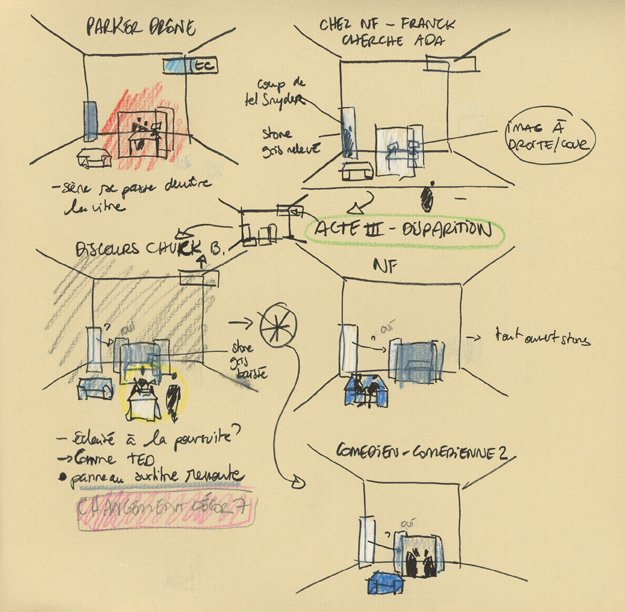 PARKER DRÔNE
EC
- Scène se passe derrière
la vitre
CHEZ NF - FRANCK
CHERCHE ADA
coup de
tel Snyder
store
gris relevé
IMAG À
DROITE/COUR
ACTE III - DISPARITION
DISCOURS CHUCK B.
?
oui
store
gris
baissé
- Éclairé à la poursuite?
→ Comme TED
• panneau surtitre remonte
CHANGEMENT DÉCOR 7
NF
?
oui
→ tout ouvert stores
COMÉDIEN - COMÉDIENNE 2
?
oui